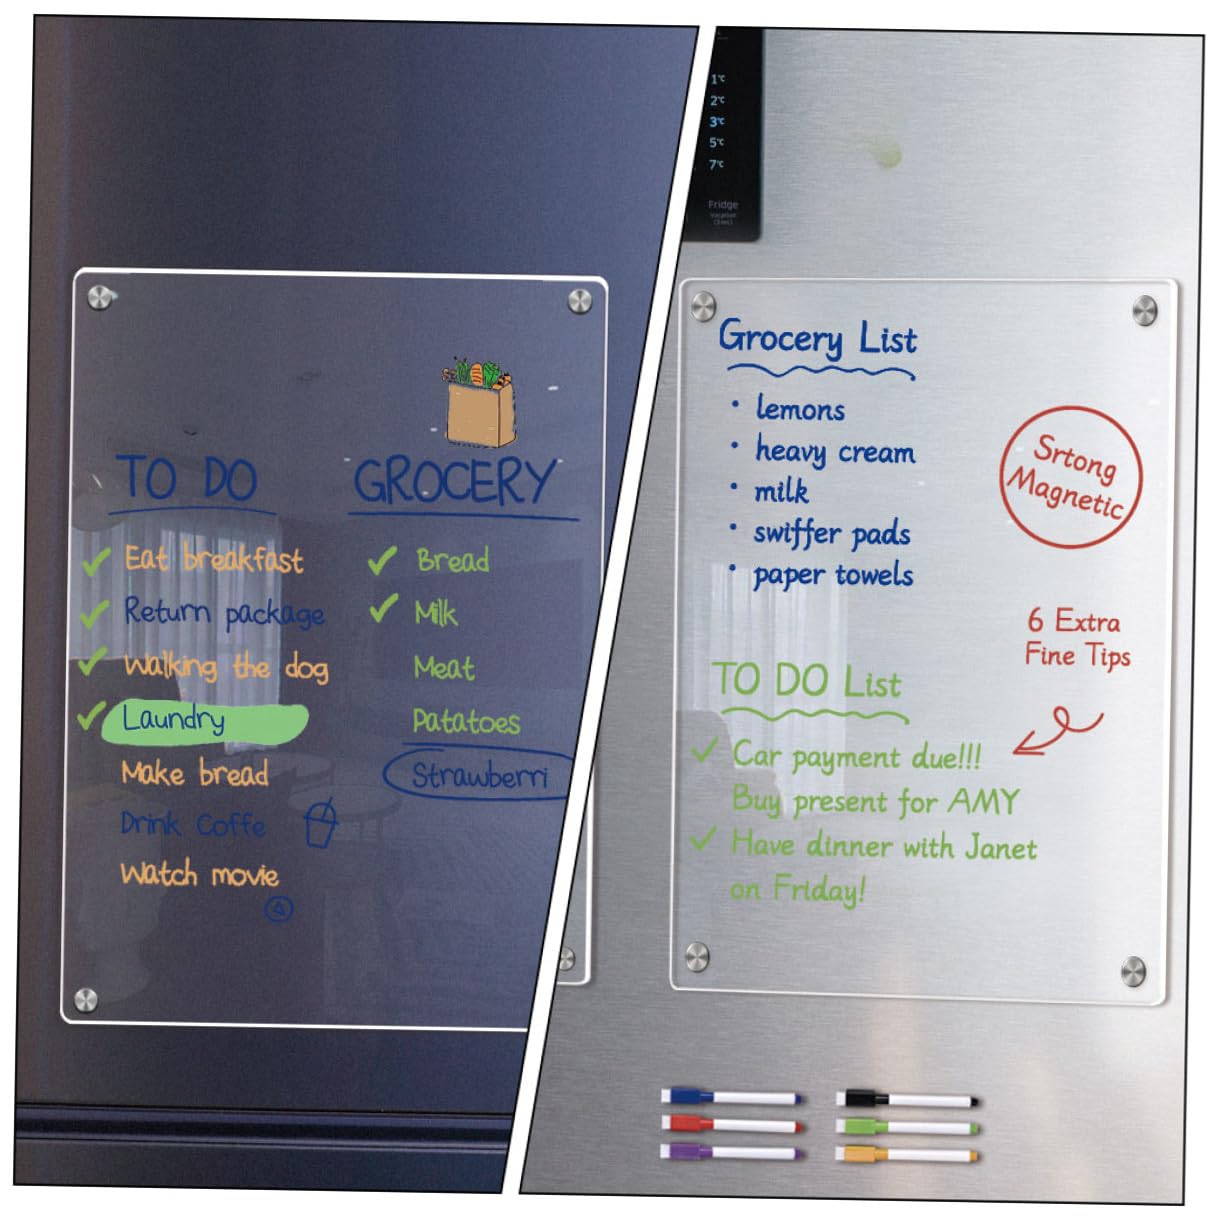 TO DO
Eat breakfast
Return package
Walking the dog
Laundry
Make bread
Drink Coffe
Watch movie
GROCERY
Bread
Milk
Meat
Patatoes
Strawberri
1℃
2℃
3℃
5℃
7℃
Fridge
Grocery List
• lemons
• heavy cream
• milk
• swiffer pads
• paper towels
Srtong
Magnetic
6 Extra
Fine Tips
TO DO List
Car payment due!!!
Buy present for AMY
Have dinner with Janet
on Friday!